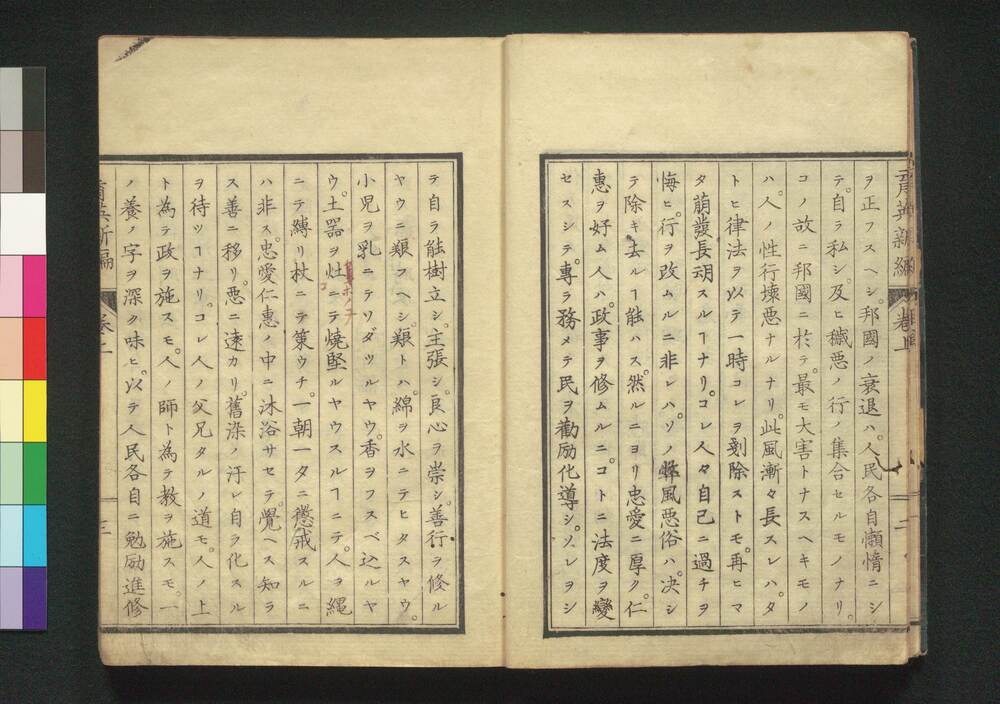 育英新編 巻上 二
ヲ正フスヘシ。邦國ノ衰退ハ。人民各自懶惰ニシ
テ。自ラ私シ。及ヒ穢悪ノ行ノ集合セルモノナリ。
コノ故ニ邦國ニ於テ。最モ大害トナスヘキモノ
ハ。人ノ性行壊悪ナルナリ。此風漸々長スレハ。タ
トヒ律法ヲ以テ一時コレヲ剗除ストモ。再ヒマ
タ萠發長胡スルヿナリ。コレ人々自己ニ過チヲ
悔ヒ。行ヲ改ムルニ非レハ。ソノ弊風悪俗ハ。决シ
テ除キ去ルヿ能ハス。然ルニヨリ忠愛ニ厚ク。仁
惠ヲ好ム人ハ。政事ヲ修ムルニ。コトニ法度ヲ變
セスシテ。專ラ務メテ民ヲ勸励化導シ。ソレヲシ
テ自ラ能樹立シ。主張シ。良心ヲ崇シ。善行ヲ修ル
ヤウニ纇フヘシ。纇トハ。綿ヲ水ニテヒタスヤウ。
小児ヲ乳ニテソダツルヤウ。香ヲフスベ込ルヤ
ウ。土器ヲ灶ニテ焼堅ルヤウスルヿニテ。人ヲ繩
ニテ縛リ杖ニテ策ウチ。一朝一タニ懲戒スルニ
ハ非ス。忠愛仁惠ノ中ニ沐浴サセテ。覺ヘス知ラ
ス善ニ移リ。悪ニ遠カリ。舊染ノ汙レ自ラ化スル
ヲ待ツヿナリ。コレ人ノ父兄タルノ道モ。人ノ上
ト為テ政ヲ施スモ。人ノ師ト為テ教ヲ施スモ。一
ノ養ノ字ヲ深ク味ヒ。以テ人民各自ニ勉励進修
育英新編 巻上 三